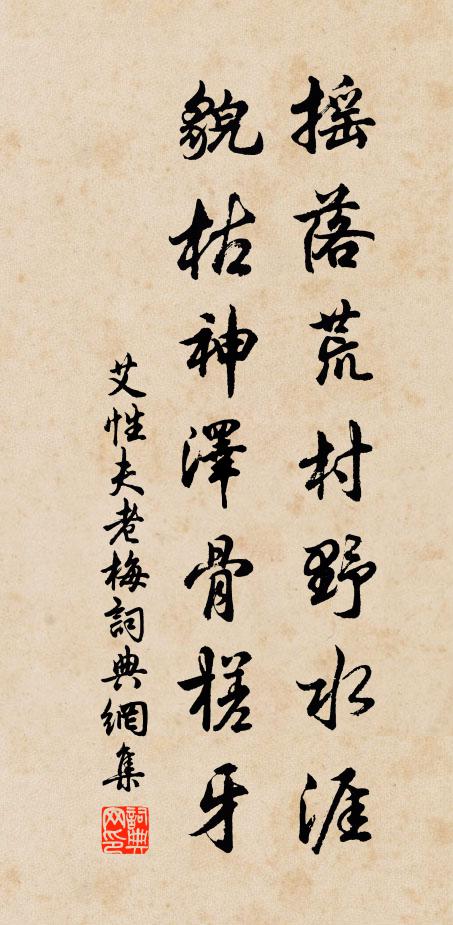 搖落荒村野水涯
貌枯神澤骨槎牙
艾性夫老梅詞典網集
詞典网印